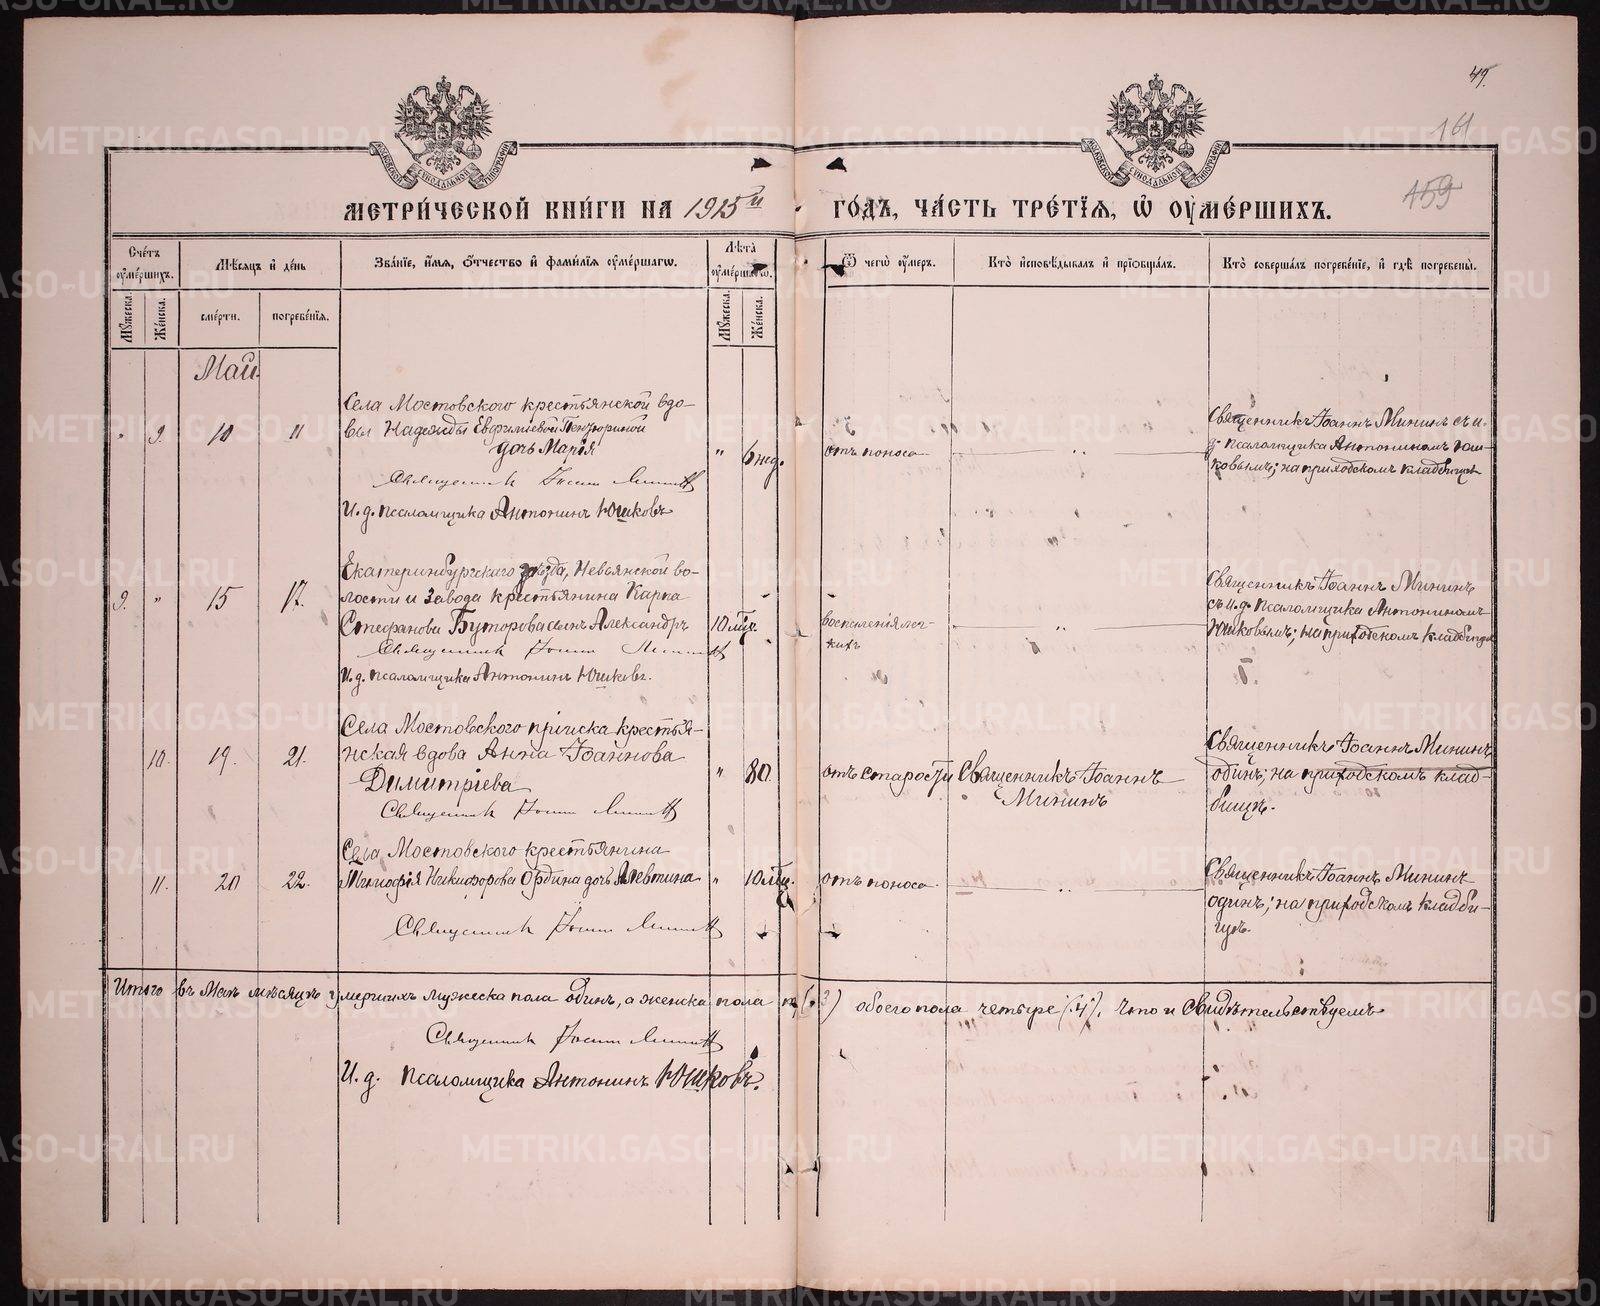 49.
161
159
МЕТРИЧЕСКОЙ КНИГИ НА 1915й ГОДЪ, ЧАСТЬ ТРЕТІЯ, Ѿ ОУМЕРШИХЪ.
Счетъ оумершихъ.
Мѣсяцъ и день
Званіе, имя, отчество и фамилія оумершагѡ.
Лѣта оумершагѡ.
Ѿ чегѡ оумеръ.
Кто исповѣдывалъ и пріобщалъ.
Кто совершалъ погребеніе, и гдѣ погребены.
Мужеска.
Женска.
смерти.
погребенія.
Мужеска.
Женска.
Май.
Села Мостовского крестьянской вдо-
вы Надежды Евфиміевой
дочь Марія
" 9. 10 11
" 6 нед.
отъ поноса
"
Священникъ Іоаннъ Мининъ съ и.
д. псаломщика Антониномъ Юш-
ковымъ; на приходскомъ кладбищѣ
Священникъ Іоаннъ Мининъ
И. д. псаломщика Антонинъ Юшковъ
Екатеринбургскаго уѣзда, Невьянской во-
лости и завода крестьянина Карпа
Стефанова Буторова сынъ Александръ
9. " 15 17.
10 мѣс.
воспаленія лег-
кихъ
"
Священникъ Іоаннъ Мининъ
съ и. д. псаломщика Антониномъ
Юшковымъ; на приходскомъ кладбищѣ
Священникъ Іоаннъ Мининъ
И. д. псаломщика Антонинъ Юшковъ.
Села Мостовского пріиска крестья-
нская вдова Анна Іоаннова
Димитріева
10. 19. 21.
" 80
отъ старости
Священникъ Іоаннъ
Мининъ
Священникъ Іоаннъ Мининъ
одинъ; на приходскомъ клад-
бищѣ.
Священникъ Іоаннъ Мининъ
Села Мостовского крестьянина
Никифорова Ордина дочь Алевтина
11. 20 22.
" 10 мѣс.
отъ поноса
"
Священникъ Іоаннъ Мининъ
одинъ; на приходскомъ кладби-
щѣ.
Священникъ Іоаннъ Мининъ
Итого въ Маѣ мѣсяцѣ умершихъ мужеска пола одинъ, а женска пола (3) обоего пола четыре (4). Что и свидѣтельствуемъ
Священникъ Іоаннъ Мининъ
И. д. псаломщика Антонинъ Юшковъ.
METRIKI.GASO-URAL.RU